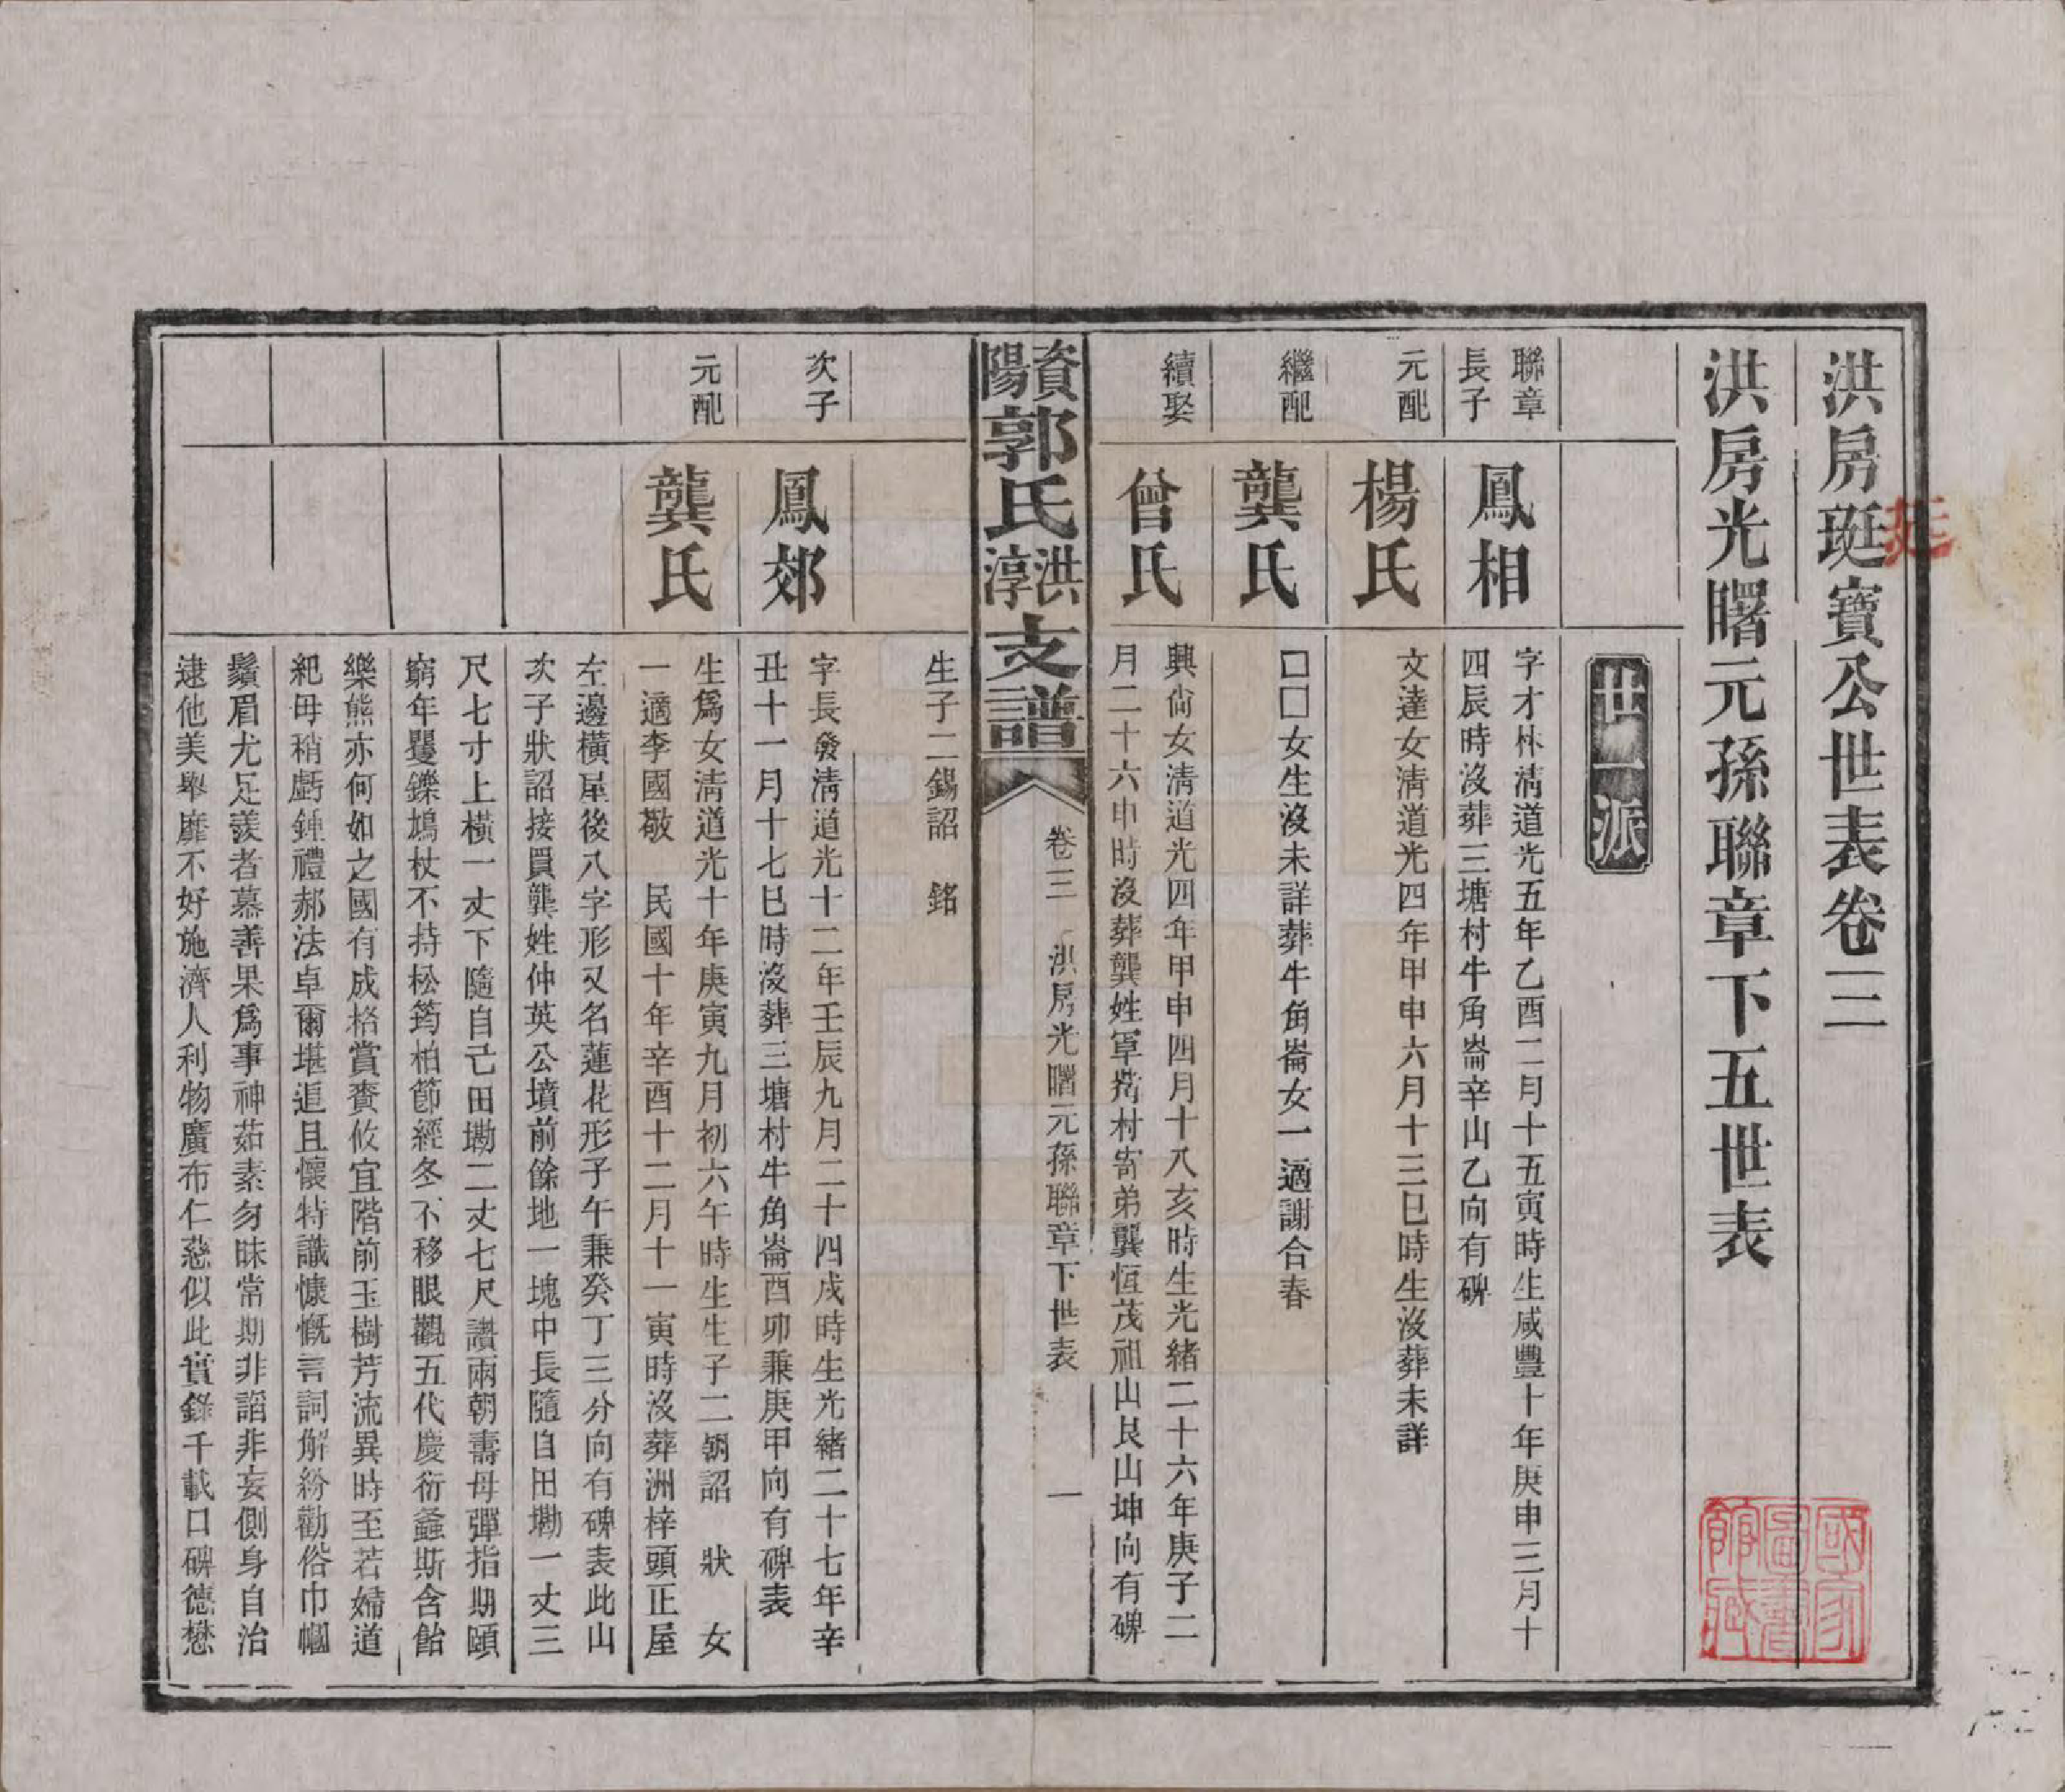 洪房珽寶公世表卷三
珽
洪房光曙元孫聯章下五世表
世一派
聯章
長子
鳳相
字才林清道光五年乙酉二月十五寅時生咸豐十年庚申三月十
四辰時沒葬三塘村牛角崙辛山乙向有碑
元配
楊氏
文達女清道光四年甲申六月十三巳時生沒葬未詳
繼配
龔氏
□□女生沒未詳葬牛角崙女一適謝合春
續娶
曾氏
興尙女清道光四年甲申四月十八亥時生光緒二十六年庚子二
月二十六申時沒葬龔姓村寄弟龔恆茂祖山艮山坤向有碑
資陽郭氏洪淳支譜
卷三
洪房光曙元孫聯章下世表
一
生子二錫詔 銘
次子
鳳郊
字長發清道光十二年壬辰九月二十四戌時生光緒二十七年辛
丑十一月十七巳時沒葬三塘村牛角崙酉卯兼庚甲向有碑表
元配
龔氏
生爲女清道光十年庚寅九月初六午時生生子二朝詔 狀 女
一適李國敬 民國十年辛酉十二月十一寅時沒葬洲梓頭正屋
左邊橫屋後八字形又名蓮花形子午兼癸丁三分向有碑表此山
次子狀詔接買龔姓仲英公墳前餘地一塊中長隨自田墈一丈三
尺七寸上橫一丈下隨自己田墈二丈七尺讚兩朝壽母彈指期頤
窮年矍鑠鳩杖不持松筠柏節經冬不移眼觀五代慶衍螽斯含飴
樂熊亦何如之國有成格賞賚攸宜階前玉樹芳流異時至若婦道
紀毋稍虧鍾禮郝法卓爾堪追且懷特識慷慨言詞解紛勸俗巾幗
鬚眉尤足羨者慕善果爲事神茹素勿昧常期非諂非妄側身自治
逮他美舉靡不好施濟人利物廣布仁慈似此實錄千載口碑德懋
國家圖書館藏